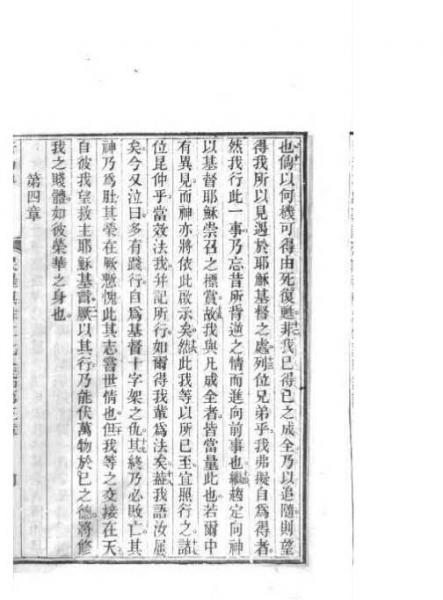 也倘以何機可得由死復甦非我已得已之成全乃以追隨則望
得我所以見遇於耶穌基督之處列位兄弟乎我弗擬自為得者
然我行此一事乃忘昔所背道之情而進向前事也繼趨定向神
以基督耶穌崇召之標賞故我與凡成全者皆當量此也若爾中
有異見而神亦將依此啟示矣然此我等以所已至宜照行之諸
位昆仲乎當效法我并記所行如爾得我輩為法矣蓋我語汝屢
矣今又泣曰多有踐行自為基督十字架之仇其終乃必敗亡其
神乃為肚其榮在厥慙愧此其志嘗世情也但我等之交接在天
自彼我望救主耶穌基督厥以其行乃能伏萬物於己之德將修
我之賤體如彼榮華之身也
第四章